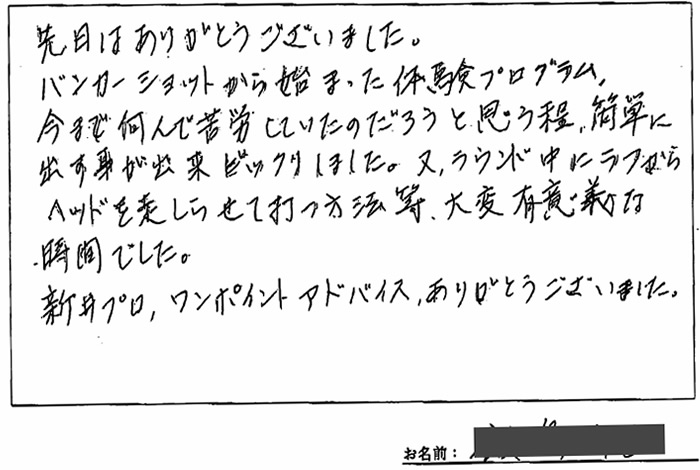 先日はありがとうございました。
バンカーショットから始まった体験プログラム,
今まで何んで苦労していたのだろうと思う程、簡単に
出す事が出来ビックリしました。又、ラウンド中にラフから
ヘッドを走しらせて打つ方法等、大変有意義な
時間でした。
新井プロ, ワンポイントアドバイス,ありがとうございました。
お名前：